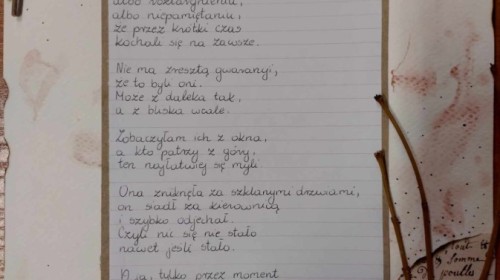 albo roztargnieniu,
albo niepamiętaniu,
że przez krótki czas
kochali się na zawsze.
Nie ma zresztą gwarancji,
że to byli oni.
Może z daleka tak,
a z bliska wcale.
Zobaczyłam ich z okna,
a kto patrzy z góry,
ten najłatwiej się myli.
Ona zniknęła za szklanymi drzwiami,
on siadł za kierownicą
i szybko odjechał.
Czyli nic się nie stało
nawet jeśli stało.
A ja, tylko przez moment